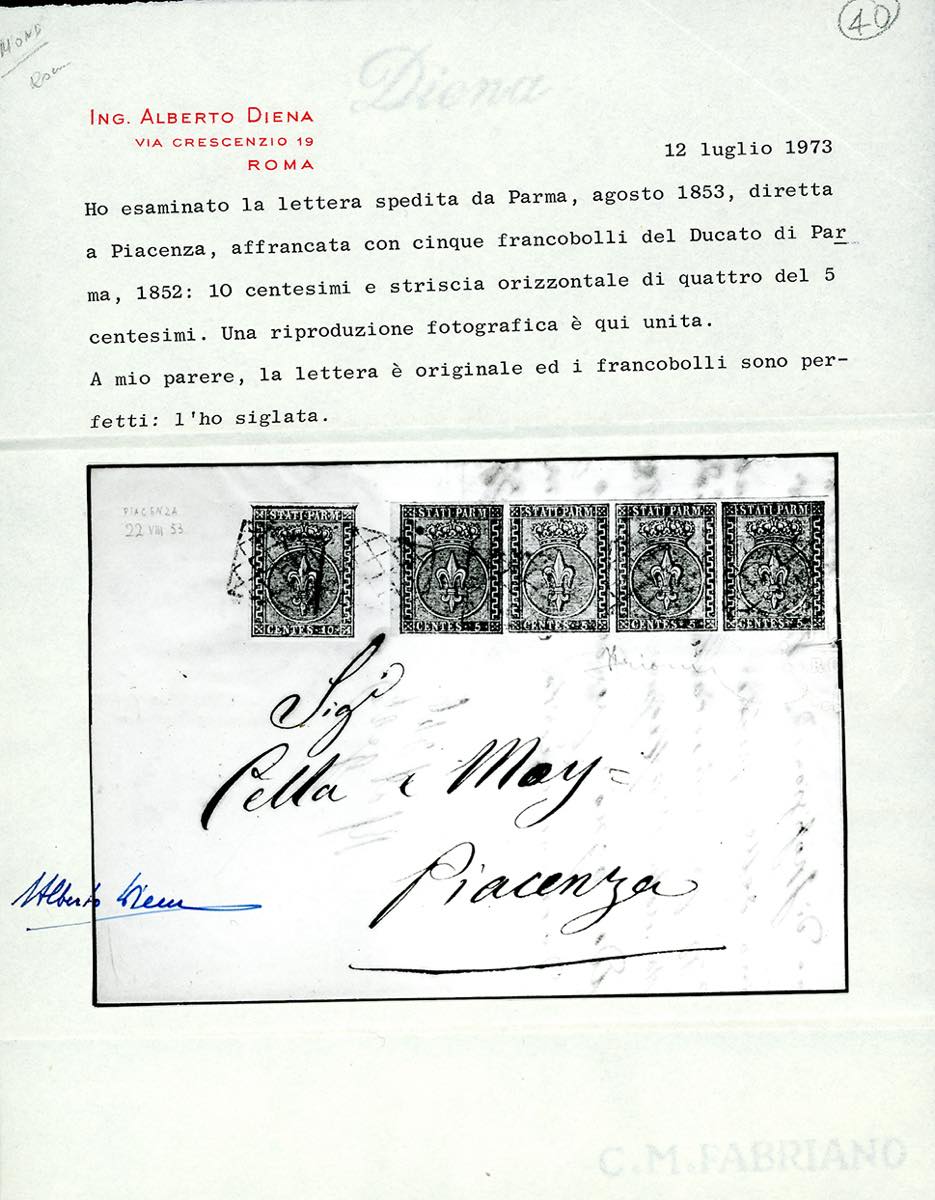 40
MOND
Diena
ING. ALBERTO DIENA
VIA CRESCENZIO 19
ROMA
12 luglio 1973
Ho esaminato la lettera spedita da Parma, agosto 1853, diretta
a Piacenza, affrancata con cinque francobolli del Ducato di Par
ma, 1852: 10 centesimi e striscia orizzontale di quattro del 5
centesimi. Una riproduzione fotografica è qui unita.
A mio parere, la lettera è originale ed i francobolli sono per-
fetti: l'ho siglata.
PIACENZA
22 VIII 53
STATI PARM STATI PARM STATI PARM STATI PARM STATI PARM
CENTES. 10. CENTES. 5 CENTES. 5 CENTES. 5 CENTES. 5
Sigi
Cella e Moy=
Piacenza
Alberto Diena
C.M.FABRIANO